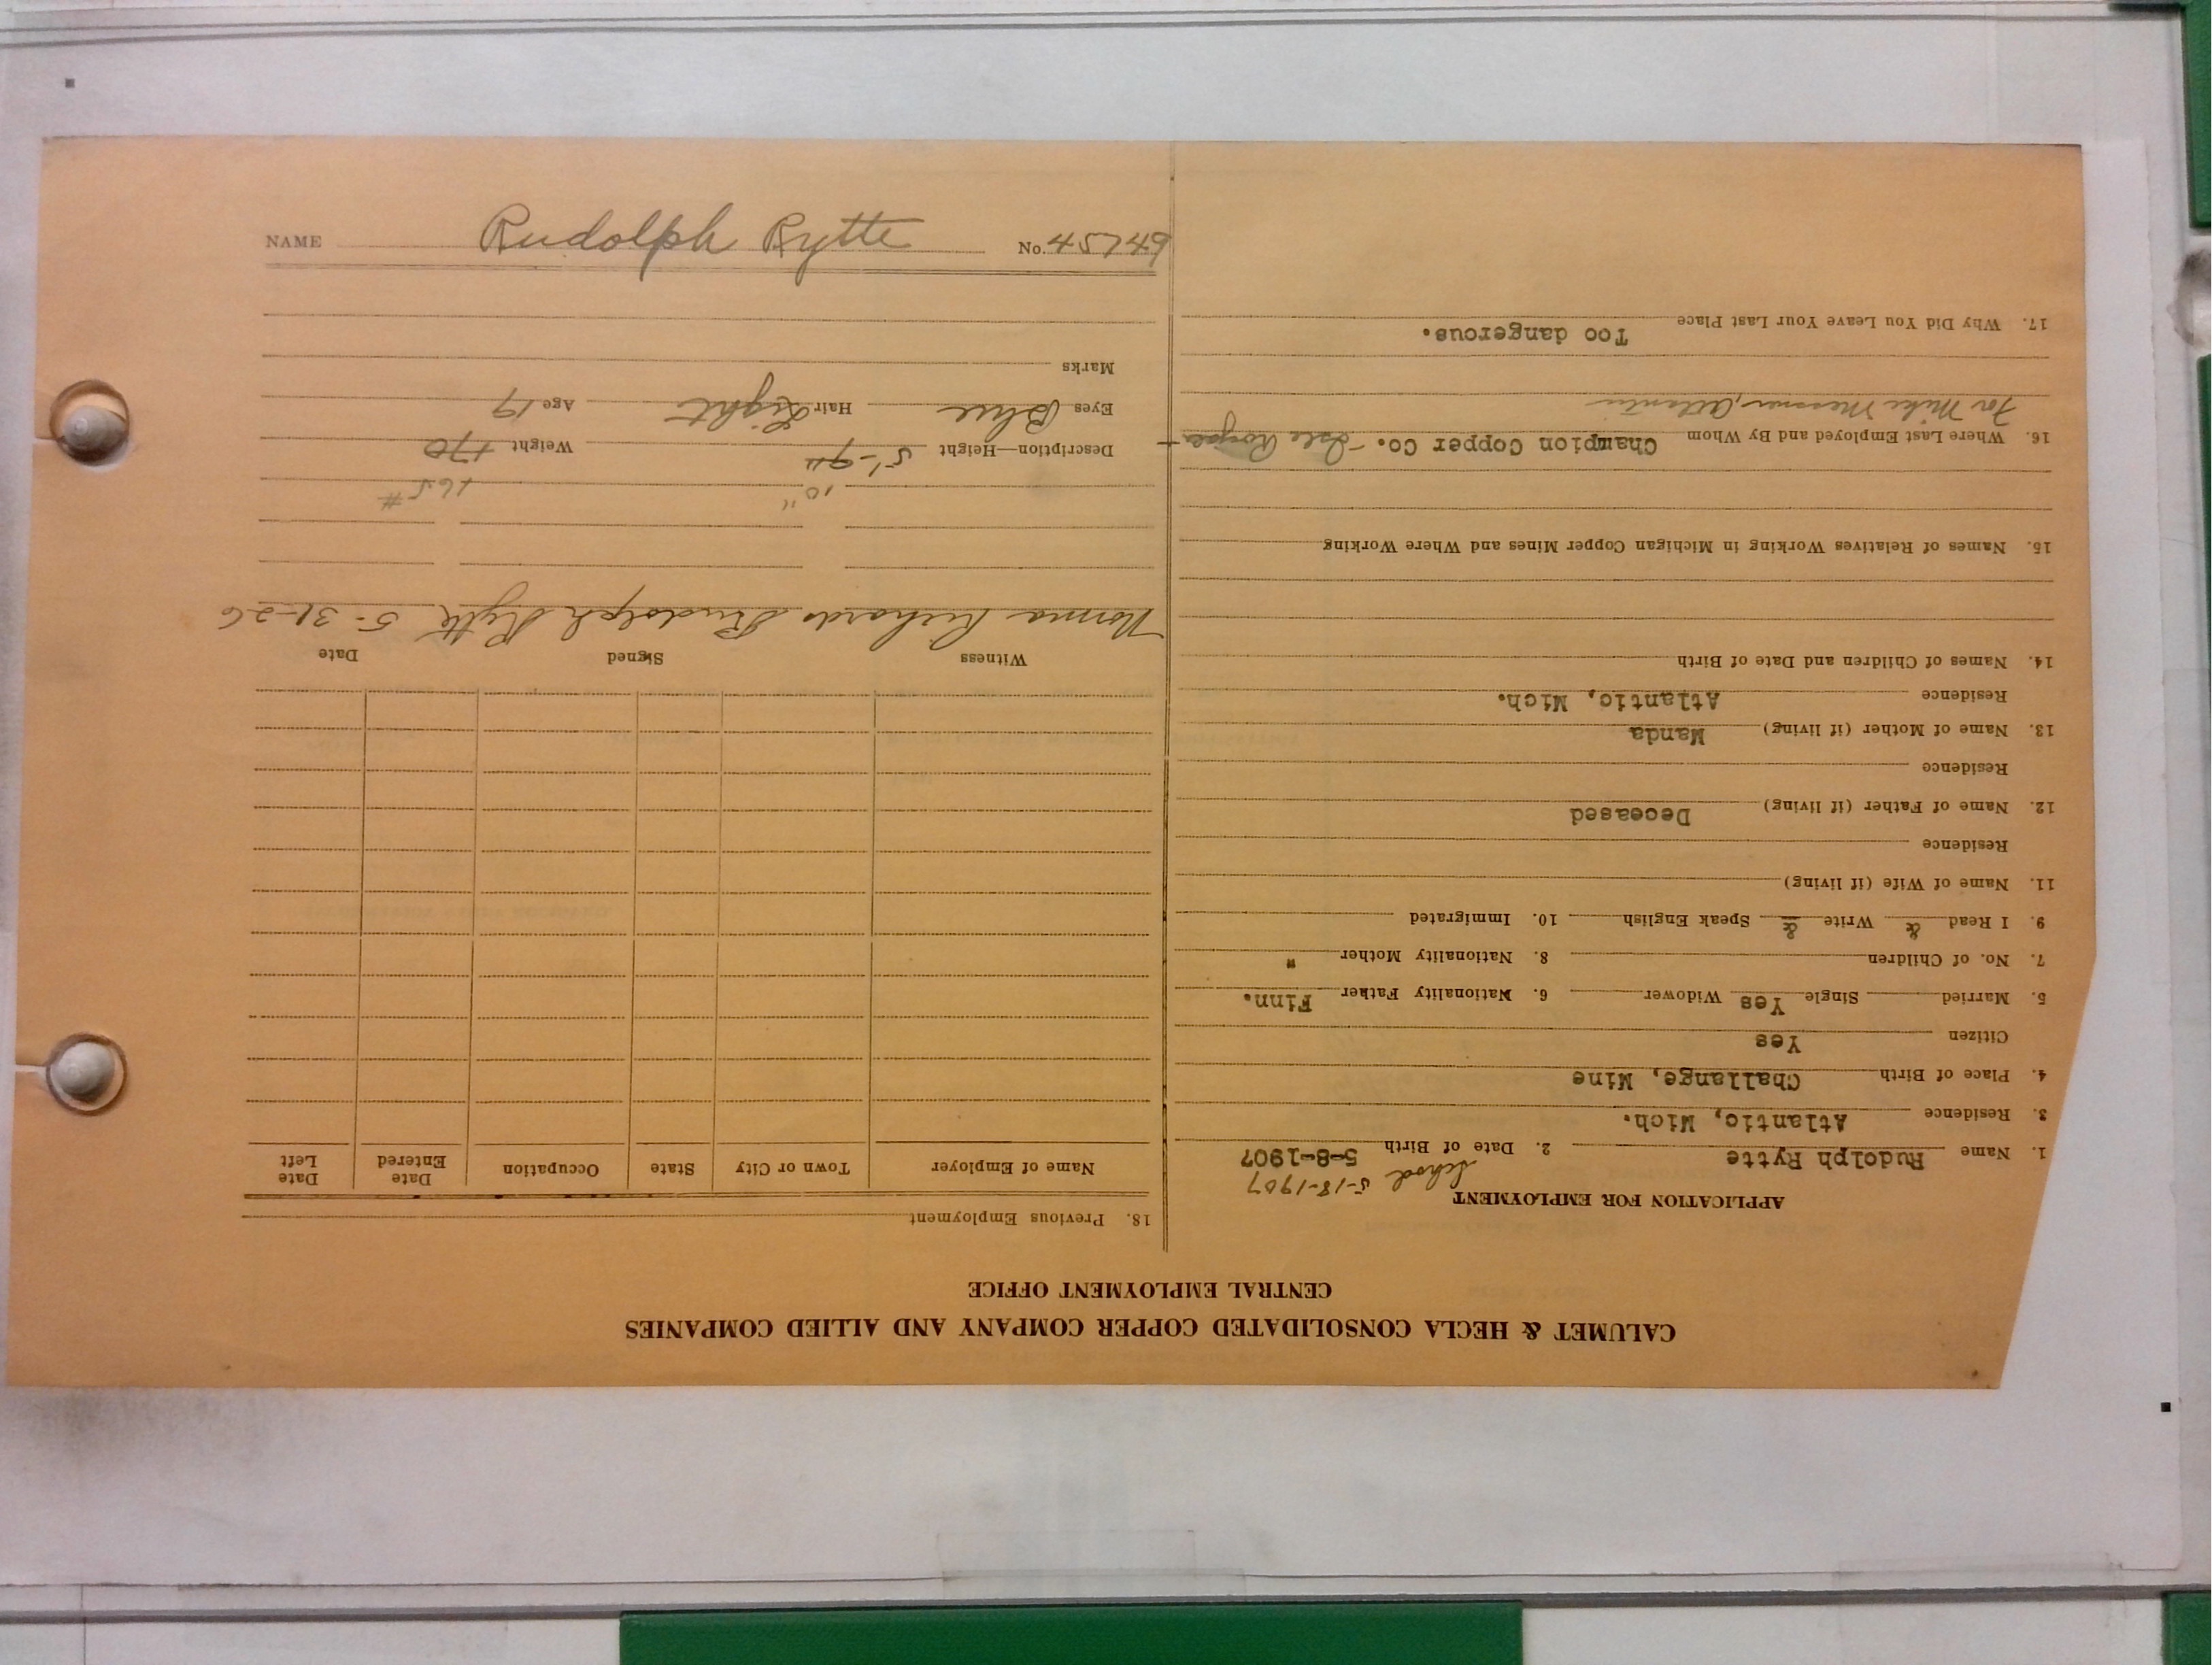 CALUMET & HECLA CONSOLIDATED COPPER COMPANY AND ALLIED COMPANIES
CENTRAL EMPLOYMENT OFFICE
APPLICATION FOR EMPLOYMENT
School 5-18-1907
1. Name Rudolph Rytte 2. Date of Birth 5-8-1907
3. Residence Atlantic, Mich.
4. Place of Birth Challange, Mine
Citizen Yes
5. Married Single Yes Widower 6. Nationality Father Finn.
7. No. of Children 8. Nationality Mother "
9. I Read & Write & Speak English 10. Immigrated
11. Name of Wife (if living)
Residence
12. Name of Father (if living) Deceased
Residence
13. Name of Mother (if living) Wanda
Residence Atlantic, Mich.
14. Names of Children and Date of Birth
15. Names of Relatives Working in Michigan Copper Mines and Where Working
16. Where Last Employed and By Whom Champion Copper Co. - Isle Royale +
For Mike Messner, Atlantic
17. Why Did You Leave Your Last Place Too dangerous.
18. Previous Employment
Name of Employer Town or City State Occupation Date Entered Date Left
Witness Signed Date
Norma Richards Rudolph Rytte 5-31-26
10" 165#
Description—Height 5'-9" Weight 170
Eyes Blue Hair Light Age 19
Marks
NAME Rudolph Rytte No. 45749